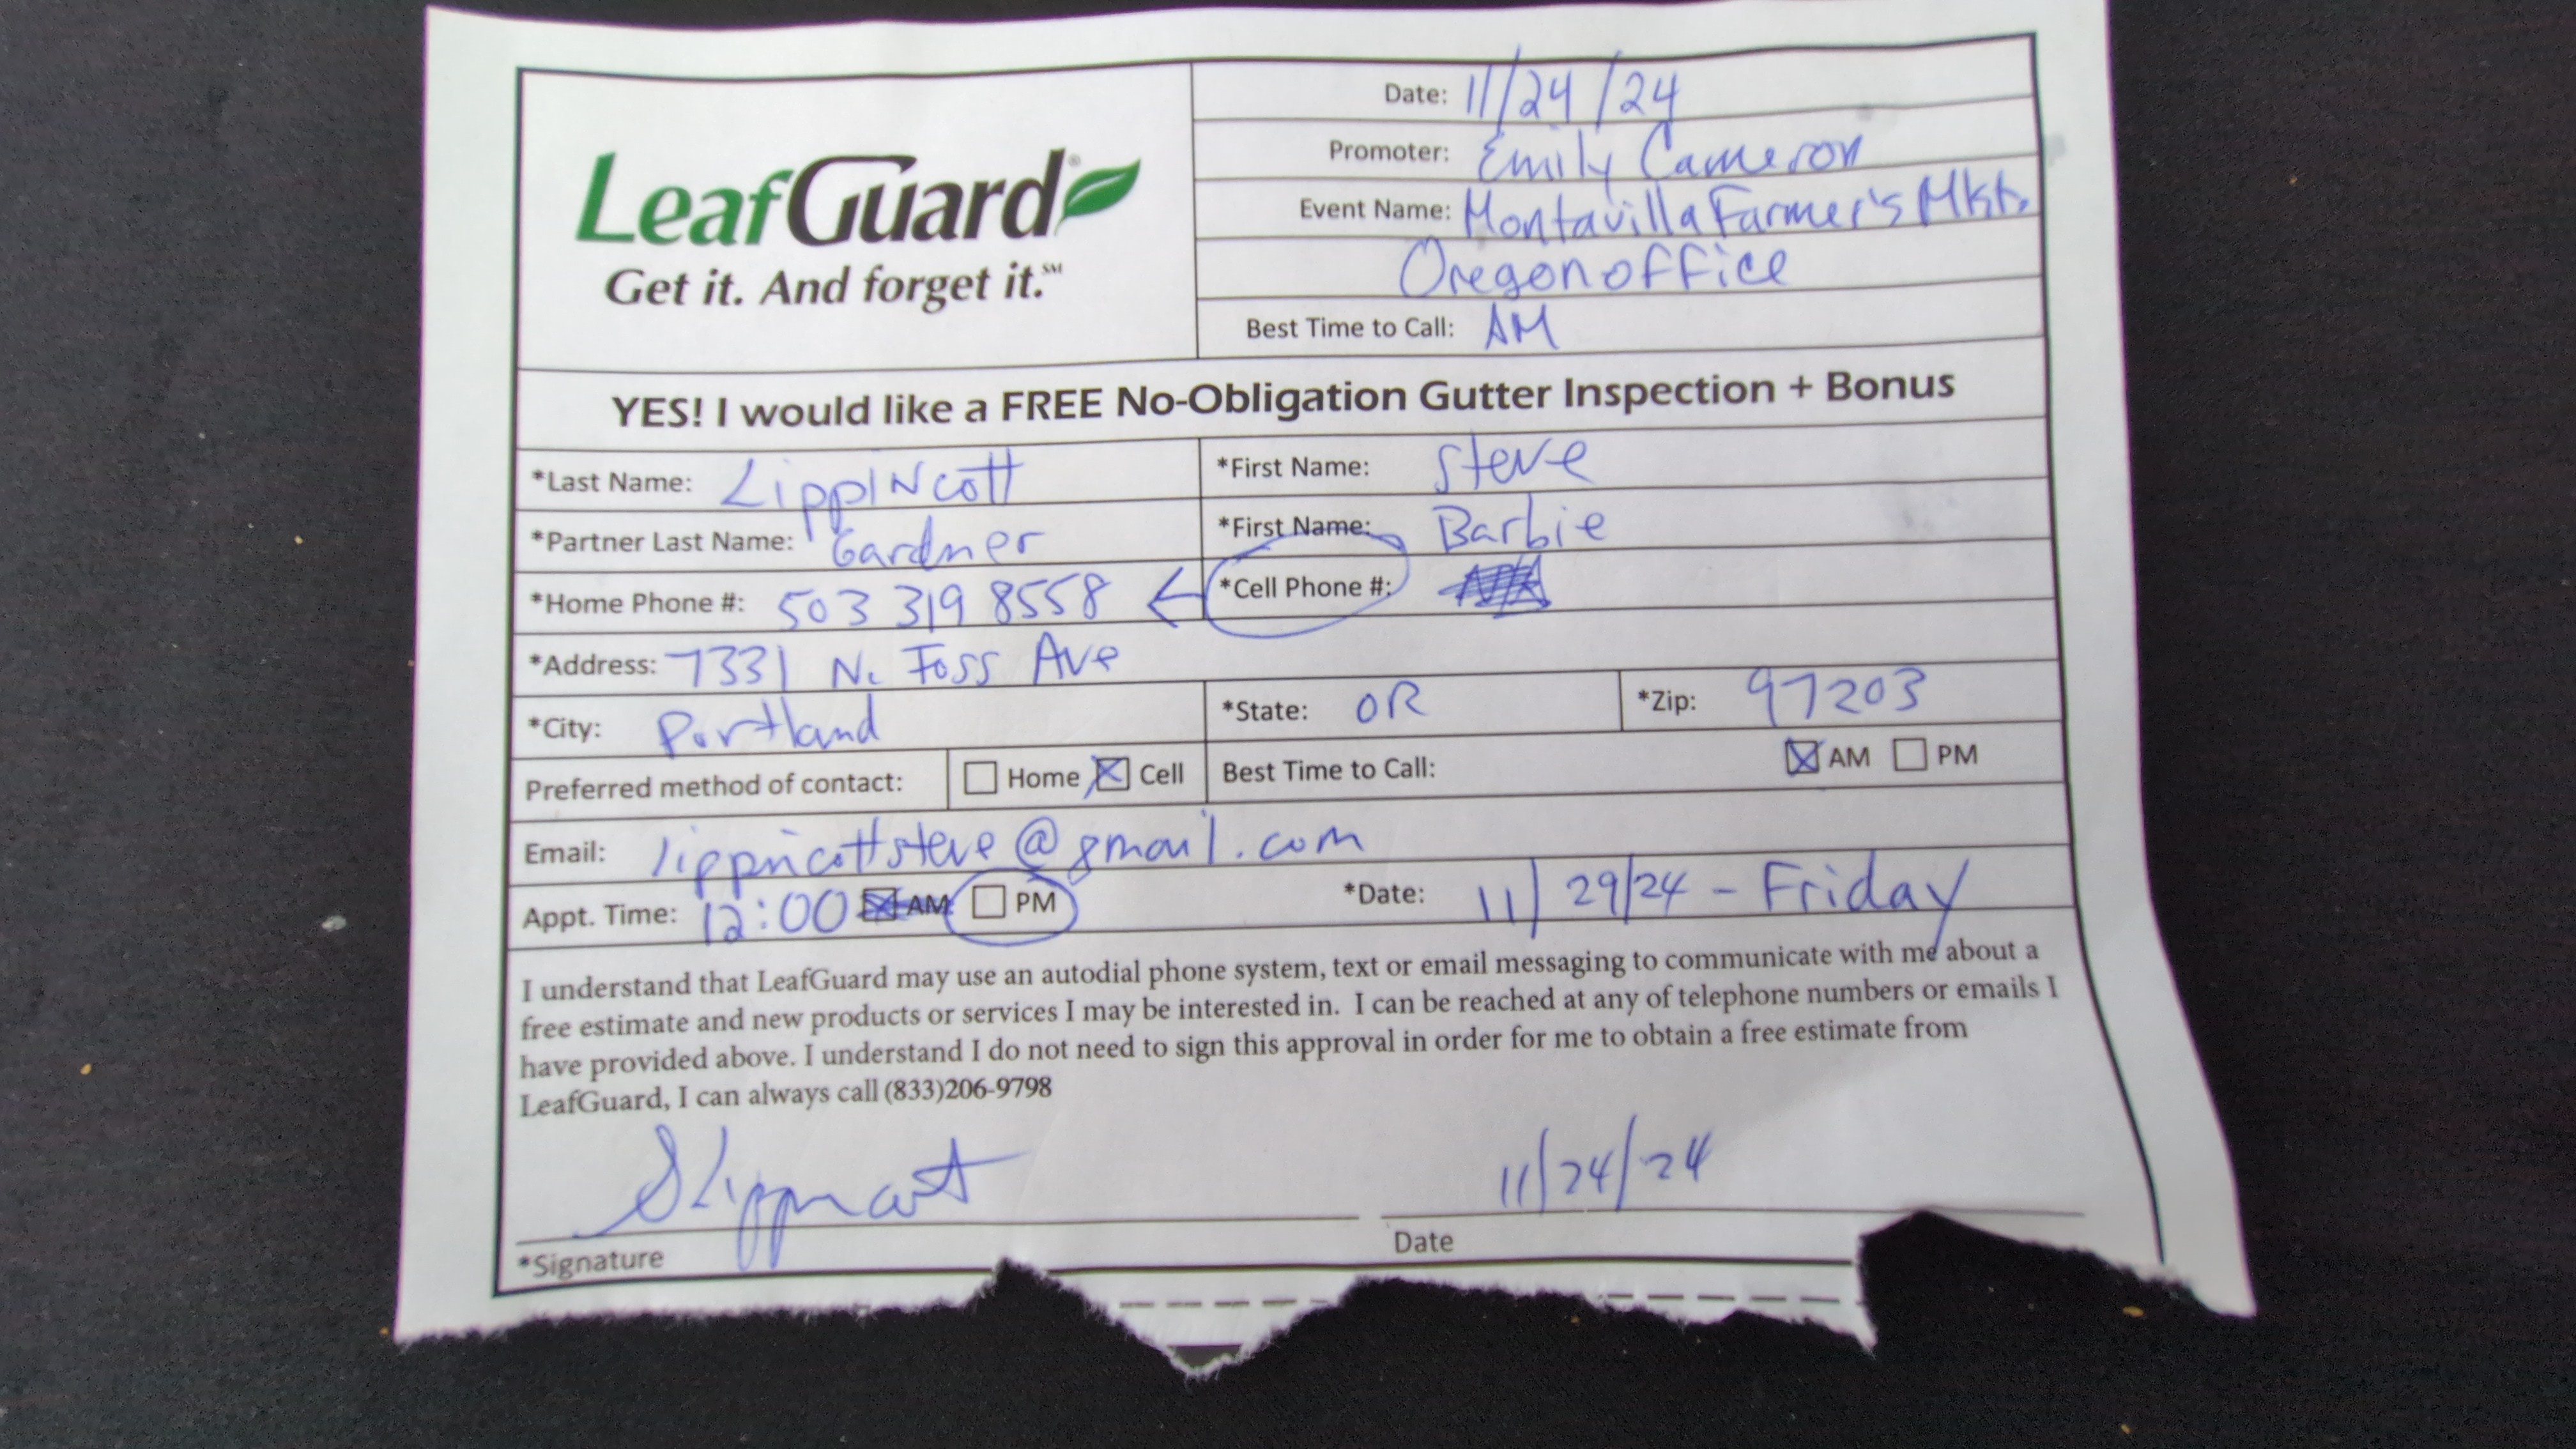 Date: 11/24/24
Promoter: Emily Cameron
LeafGuard®
Event Name: Montavilla Farmer's Mkt.
Oregon office
Get it. And forget it.℠
Best Time to Call: AM
YES! I would like a FREE No-Obligation Gutter Inspection + Bonus
*Last Name: Lippincott *First Name: Steve
*Partner Last Name: Gardner *First Name: Barbie
*Home Phone #: 503 319 8558 ← *Cell Phone #:
*Address: 7331 N. Foss Ave
*City: Portland *State: OR *Zip: 97203
Preferred method of contact: ☐ Home ☒ Cell Best Time to Call: ☒ AM ☐ PM
Email: lippincottsteve@gmail.com
Appt. Time: 12:00 ☒ AM ☐ PM *Date: 11/29/24 - Friday
I understand that LeafGuard may use an autodial phone system, text or email messaging to communicate with me about a
free estimate and new products or services I may be interested in. I can be reached at any of telephone numbers or emails I
have provided above. I understand I do not need to sign this approval in order for me to obtain a free estimate from
LeafGuard, I can always call (833)206-9798
SLippincott 11/24/24
*Signature Date